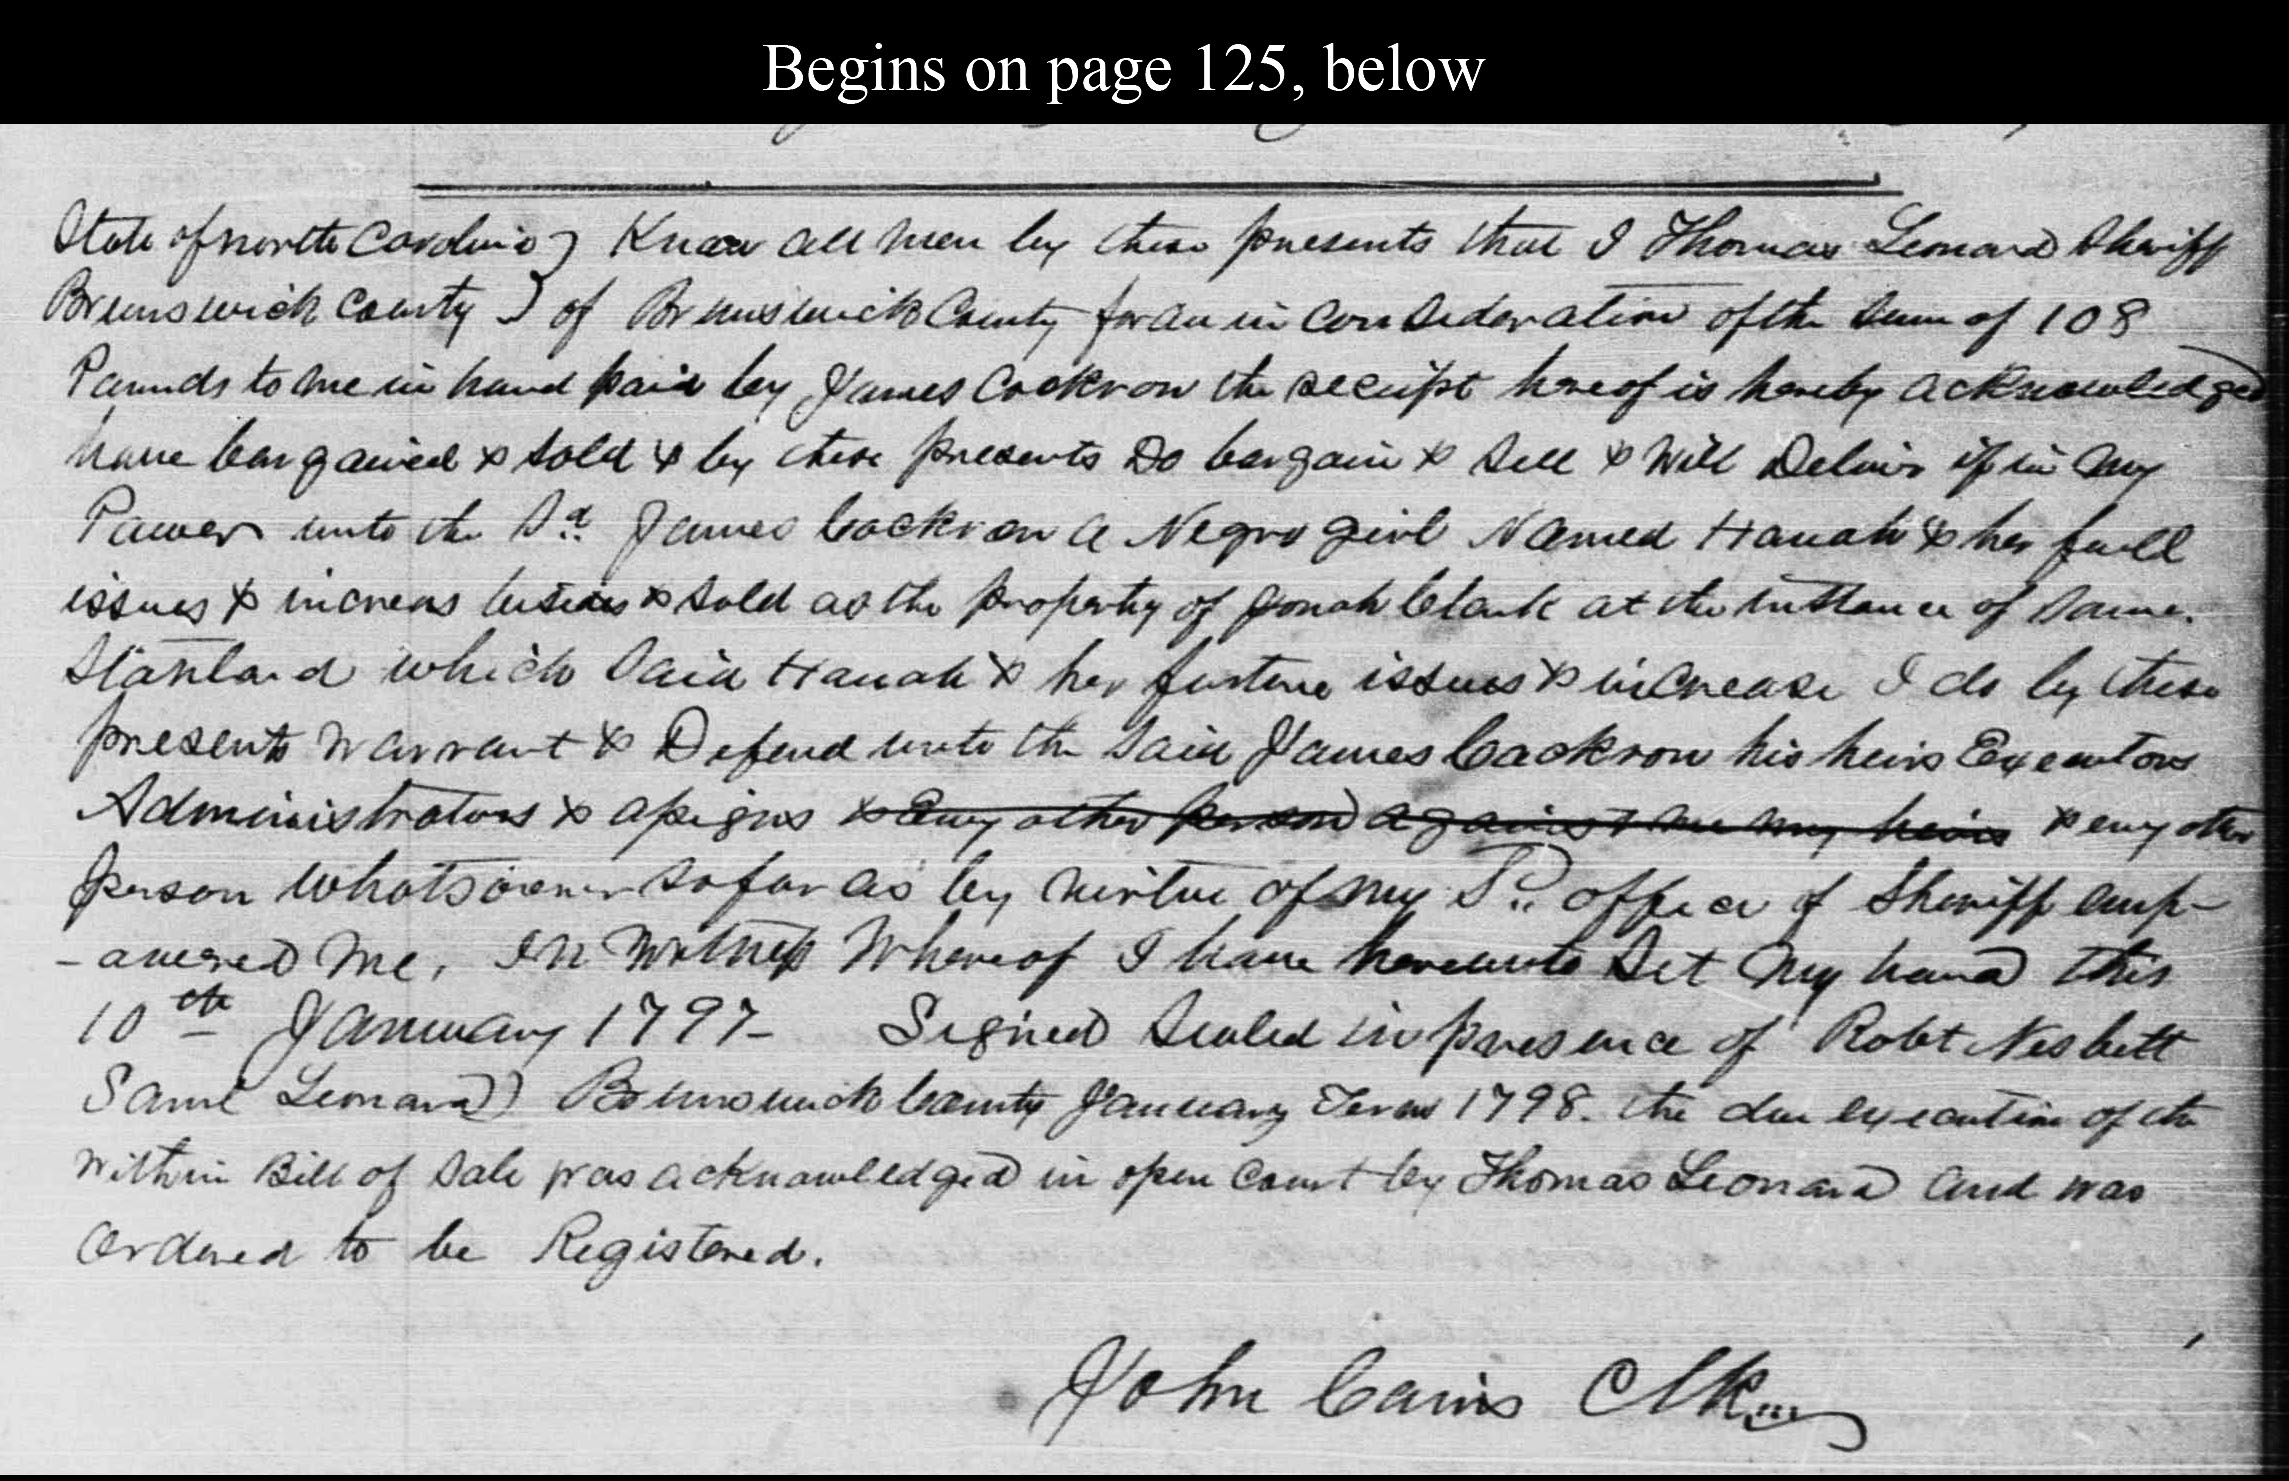 Begins on page 125, below
State of north Carolina } Know all men by these presents that I Thomas Leonard Sheriff
Brunswick County } of Brunswick County for an in Consideration of the Sum of 108
Pounds to me in hand paid by James Cockron the receipt hereof is hereby acknowledged
have bargained & sold & by these presents Do bargain & Sell & Will Deliver if in My
Power unto the Sd. James Cockron a Negro girl Named Hanah & her full
issues & increas & sold as the property of Jonah Clark at the instance of Same.
Stanland which Said Hanah & her future issues & increase I do by these
presents Warrant & Defend unto the Said James Cockron his heirs Executors
Administrators & assigns & Every other person against me my heirs & every other
person Whatsoever so far as by virtue of my Sd. office of Sheriff emp-
-owered Me, In Witness Whereof I have hereunto Set My hand this
10th January 1797- Signed Sealed in presence of Robt Nesbett
Saml Leonard) Brunswick County January Term 1798. the due execution of the
Within Bill of Sale was acknowledged in open Court by Thomas Leonard and was
Ordered to be Registered.
John Cains Clk